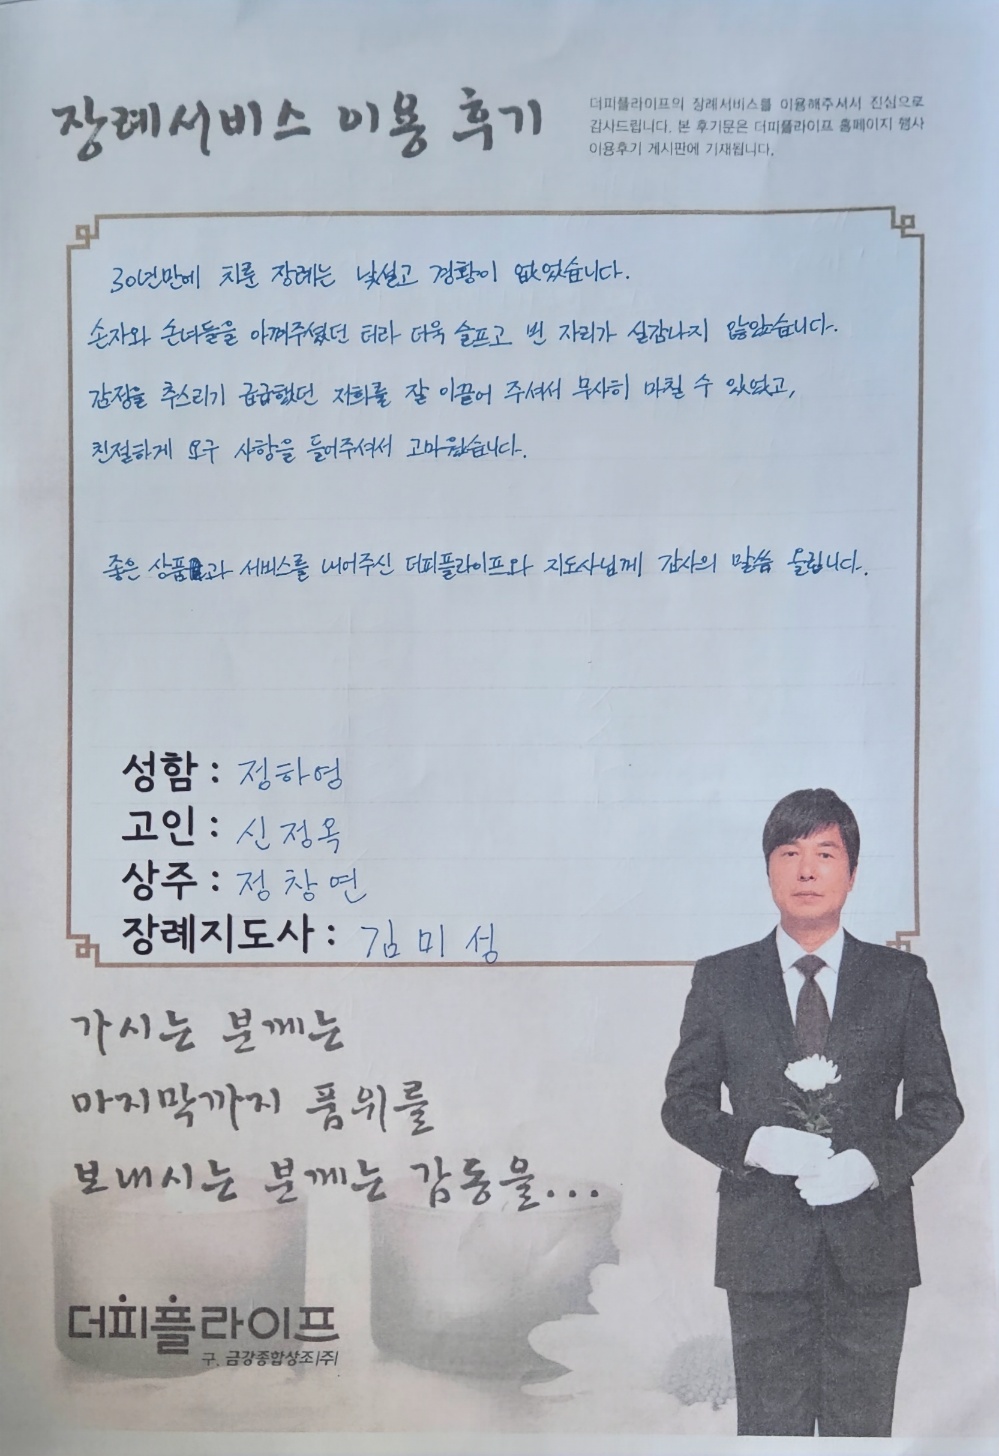 장례서비스 이용 후기
더피플라이프의 장례서비스를 이용해주셔서 진심으로
감사드립니다. 본 후기문은 더피플라이프 홈페이지 행사
이용후기 게시판에 기재됩니다.
30년만에 치룬 장례는 낯설고 경황이 없었습니다.
손자와 손녀들을 아껴주셨던 터라 더욱 슬프고 빈 자리가 실감나지 않았습니다.
감정을 추스리기 급급했던 저희를 잘 이끌어 주셔서 무사히 마칠 수 있었고,
친절하게 요구 사항을 들어주셔서 고마웠습니다.
좋은 상품과 서비스를 내어주신 더피플라이프와 지도사님께 감사의 말씀 올립니다.
성함 : 정하영
고인 : 신정옥
상주 : 정창연
장례지도사 : 김미성
가시는 분께는
마지막까지 품위를
보내시는 분께는 감동을...
더피플라이프
구. 금강종합상조(주)